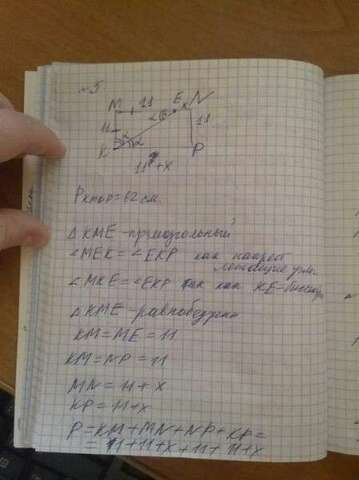 №5
M 11 E N
11 α x 11
K α α P
11+x
Pкмnp=62 см.
Δ KME - прямоугольный
∠MEK=∠EKP как накрест лежащие
∠MKE=∠EKP так как KE-биссектр
Δ KME-равнобедрен
KM=ME=11
KM=NP=11
MN=11+x
KP=11+x
P=KM+MN+NP+KP=
=11+11+x+11+11+x